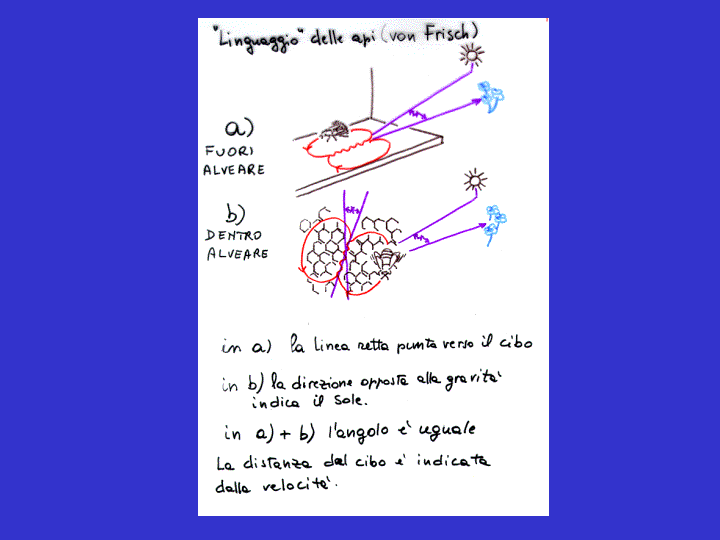 "Linguaggio" delle api (von Frisch)
a)
FUORI
ALVEARE
b)
DENTRO
ALVEARE
in a) la linea retta punta verso il cibo
in b) la direzione opposta alla gravita'
indica il Sole.
in a) + b) l'angolo e' uguale
La distanza del cibo e' indicata
dalla velocita'.